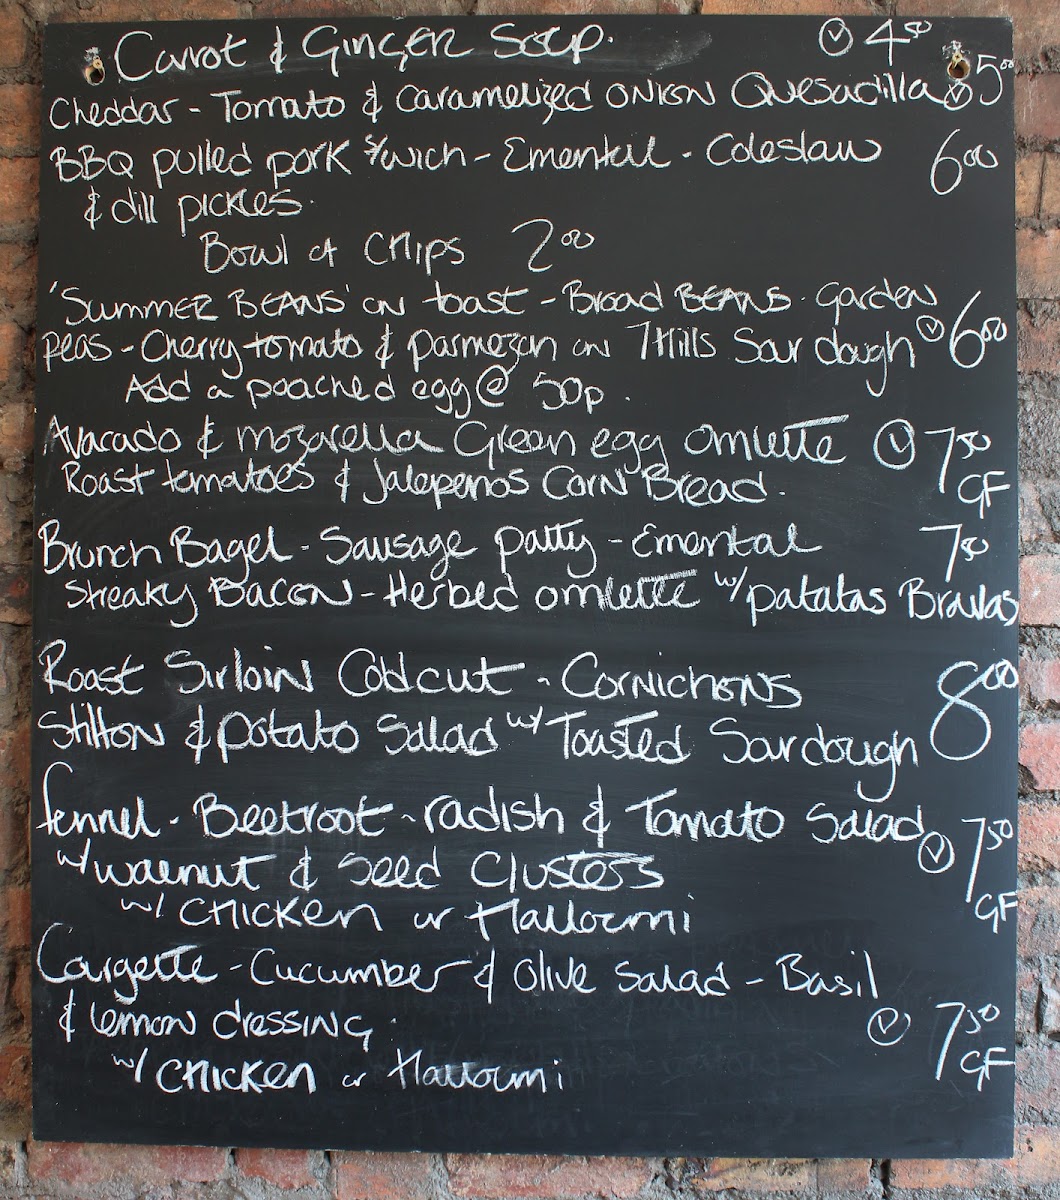 Carrot & Ginger Soup. V 4.50
Cheddar - Tomato & caramelized onion Quesadilla V 5.00
BBQ pulled pork s/wich - Emental - Coleslaw 6.00
& dill pickles.
Bowl of Chips 2.00
'Summer Beans' on toast - Broad Beans. garden
peas - Cherry tomato & parmezan on 7Hills Sourdough V 6.00
Add a poached egg @ 50p.
Avacado & mozarella Green egg omlette V 7.50
Roast tomatoes & Jalepenos Corn Bread. GF
Brunch Bagel - Sausage patty - Emental 7.50
Streaky Bacon - Herbed omlette w/ patatas Bravas
Roast Sirloin Coldcut - Cornichons 8.00
Stilton & potato Salad w/ Toasted Sourdough
fennel - Beetroot - radish & Tomato Salad V 7.50
w/ walnut & Seed Clusters GF
w/ Chicken or Halloumi
Courgette - Cucumber & Olive Salad - Basil
& lemon dressing. V 7.50
w/ Chicken or Halloumi GF